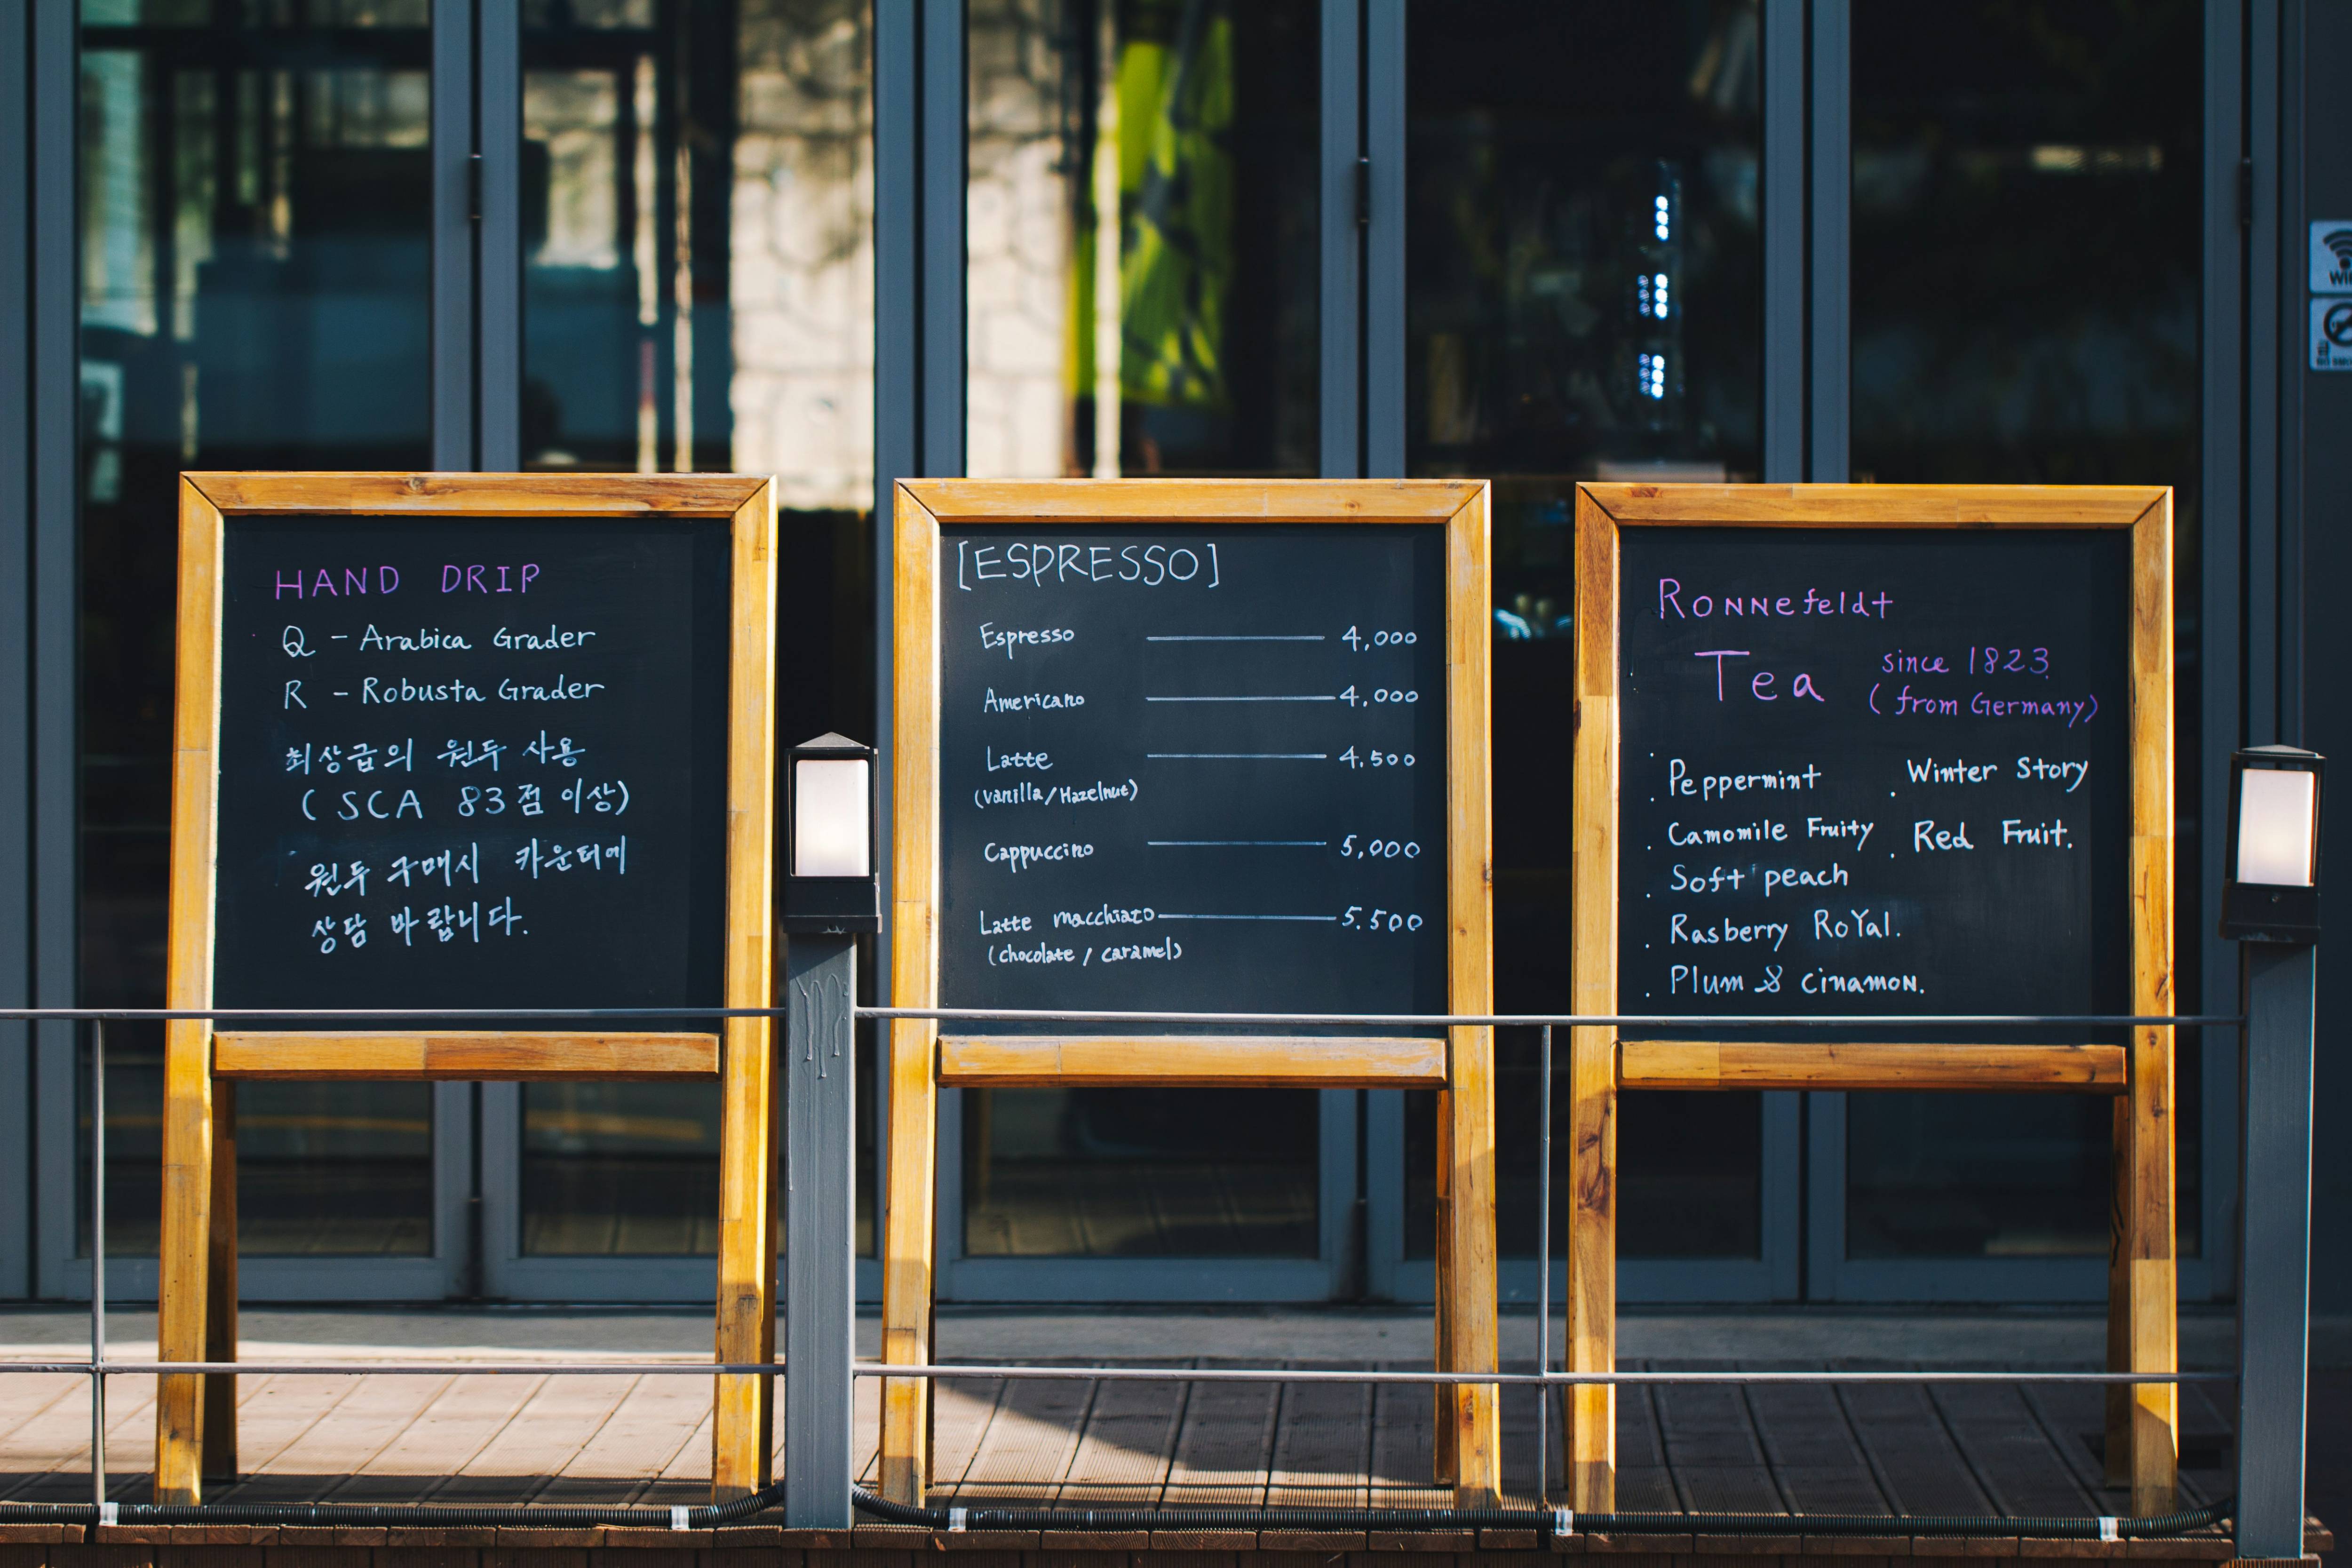 HAND DRIP
Q - Arabica Grader
R - Robusta Grader
최상급의 원두 사용
(SCA 83점 이상)
원두 구매시 카운터에
상담 바랍니다.
[ESPRESSO]
Espresso 4,000
Americano 4,000
Latte 4.500
(vanilla/Hazelnut)
Cappuccino 5,000
Latte macchiato 5.500
(chocolate / caramel)
RONNefeldt
Tea since 1823.
(from Germany)
. Peppermint . Winter Story
. Camomile Fruity . Red Fruit.
. Soft peach
. Rasberry RoYal.
. Plum & cinamon.